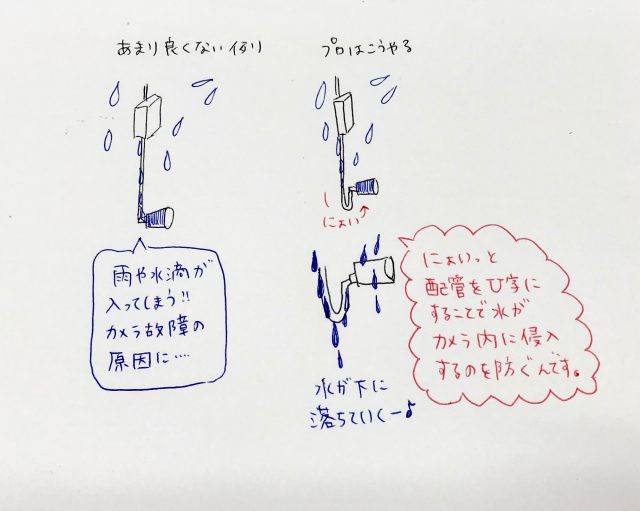 あまり良くない例り
プロはこうやる
にょい↑
雨や水滴が
入ってしまう!!
カメラ故障の
原因に….
にょいっと
配管をひ字に
することで水が
カメラ内に侵入
するのを防ぐんです。
水が下に
落ちていくー♪